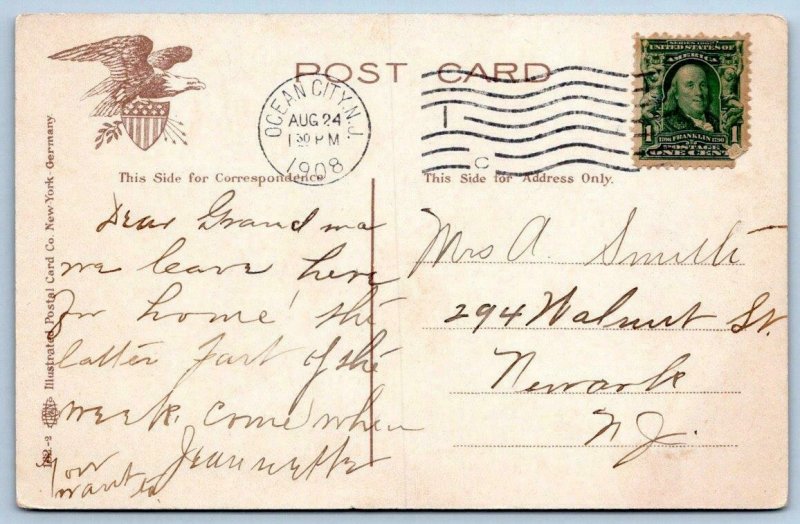 POST CARD
OCEAN CITY, N.J.
AUG 24
1 30 PM
1908
1
C
SERIES 1902
UNITED STATES OF AMERICA
1706 FRANKLIN 1790
1 POSTAGE 1
ONE CENT
This Side for Correspondence
This Side for Address Only.
Illustrated Postal Card Co. New-York-Germany.
Dear Grandma
we leave here
for home the
latter part of the
week. come when
you want to
Jeannette
Mrs A. Smith
294 Walnut St.
Newark
N J.